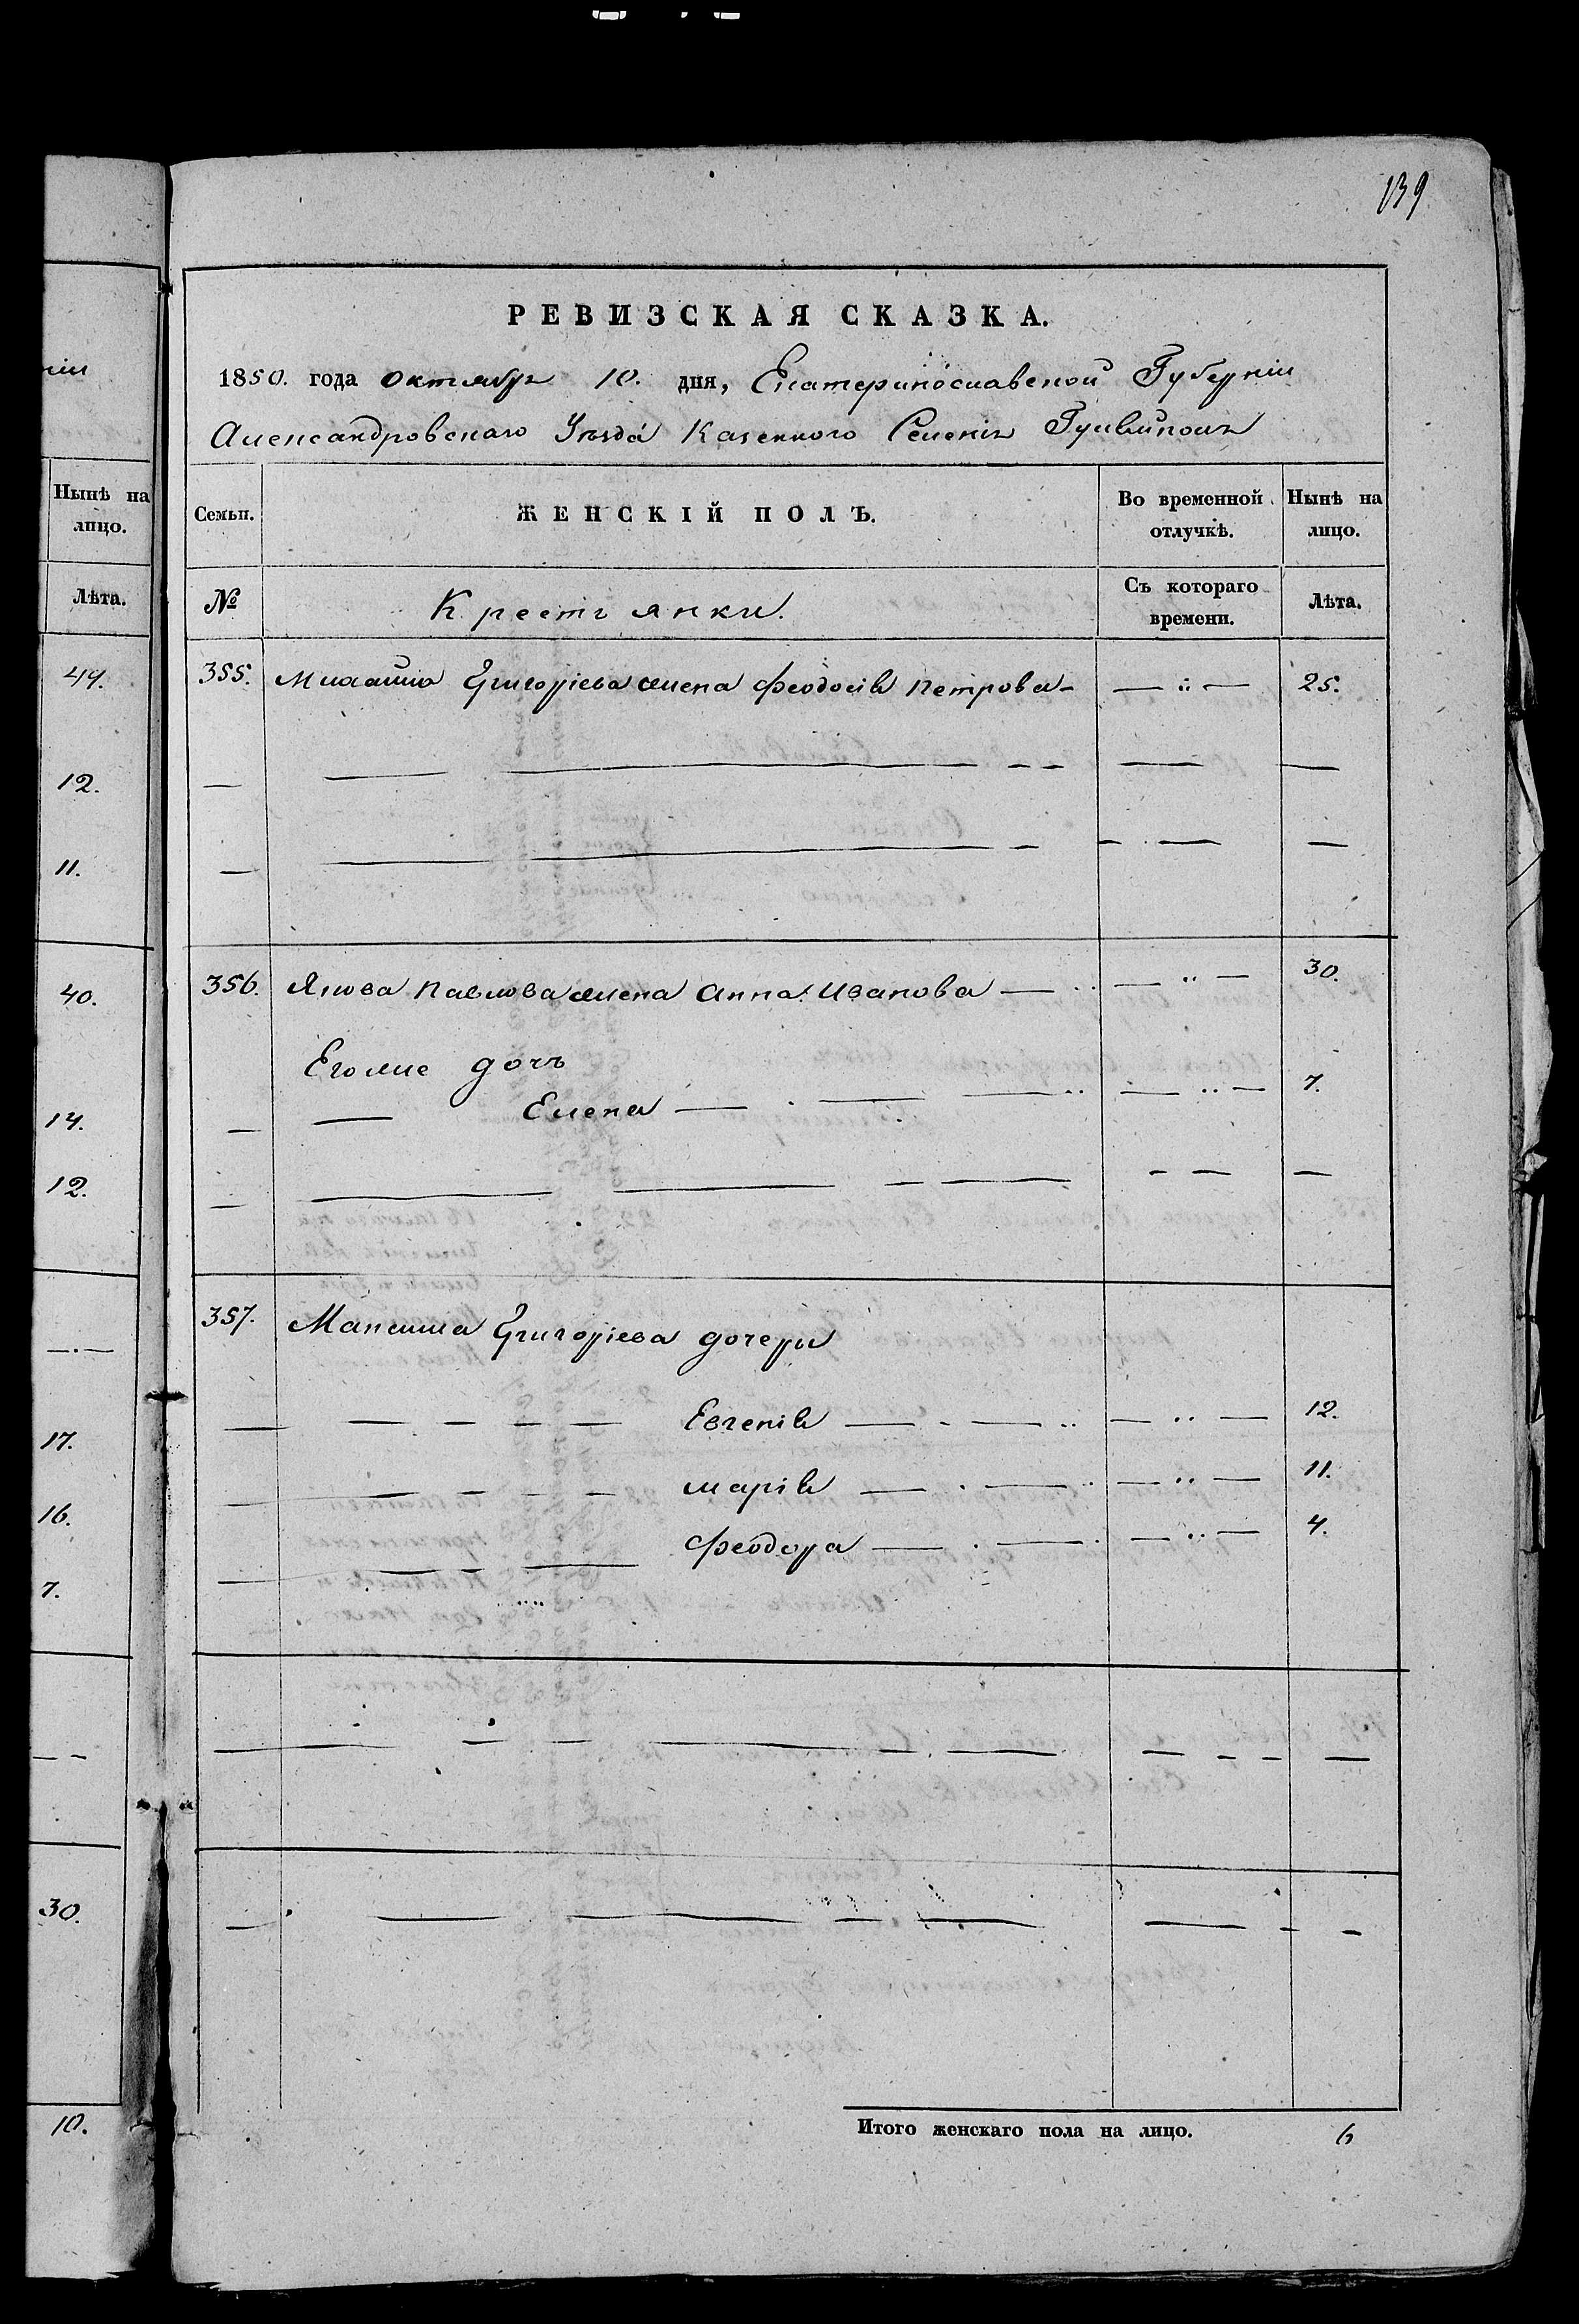 139
РЕВИЗСКАЯ СКАЗКА.
1850. года октября 10. дня, Екатеринославской Губерніи
Александровскаго Уѣзда Казенного Селенія Гуляйполя
нiи
Нынѣ на лицо.
Лѣта.
49.
12.
11.
40.
14.
12.
17.
16.
7.
30.
10.
Семьи. ЖЕНСКІЙ ПОЛЪ. Во временной отлучкѣ. Нынѣ на лицо.
№ Крестьянки. Съ котораго времени. Лѣта.
355. Михайла Григорiева жена Феодосія Петрова 25.
356. Якова Павлова жена Анна Иванова 30.
Его же дочь
Елена 7.
357. Максима Григорiева дочери
Евгенія 12.
Марія 11.
Феодора 4.
Итого женскаго пола на лицо. 6